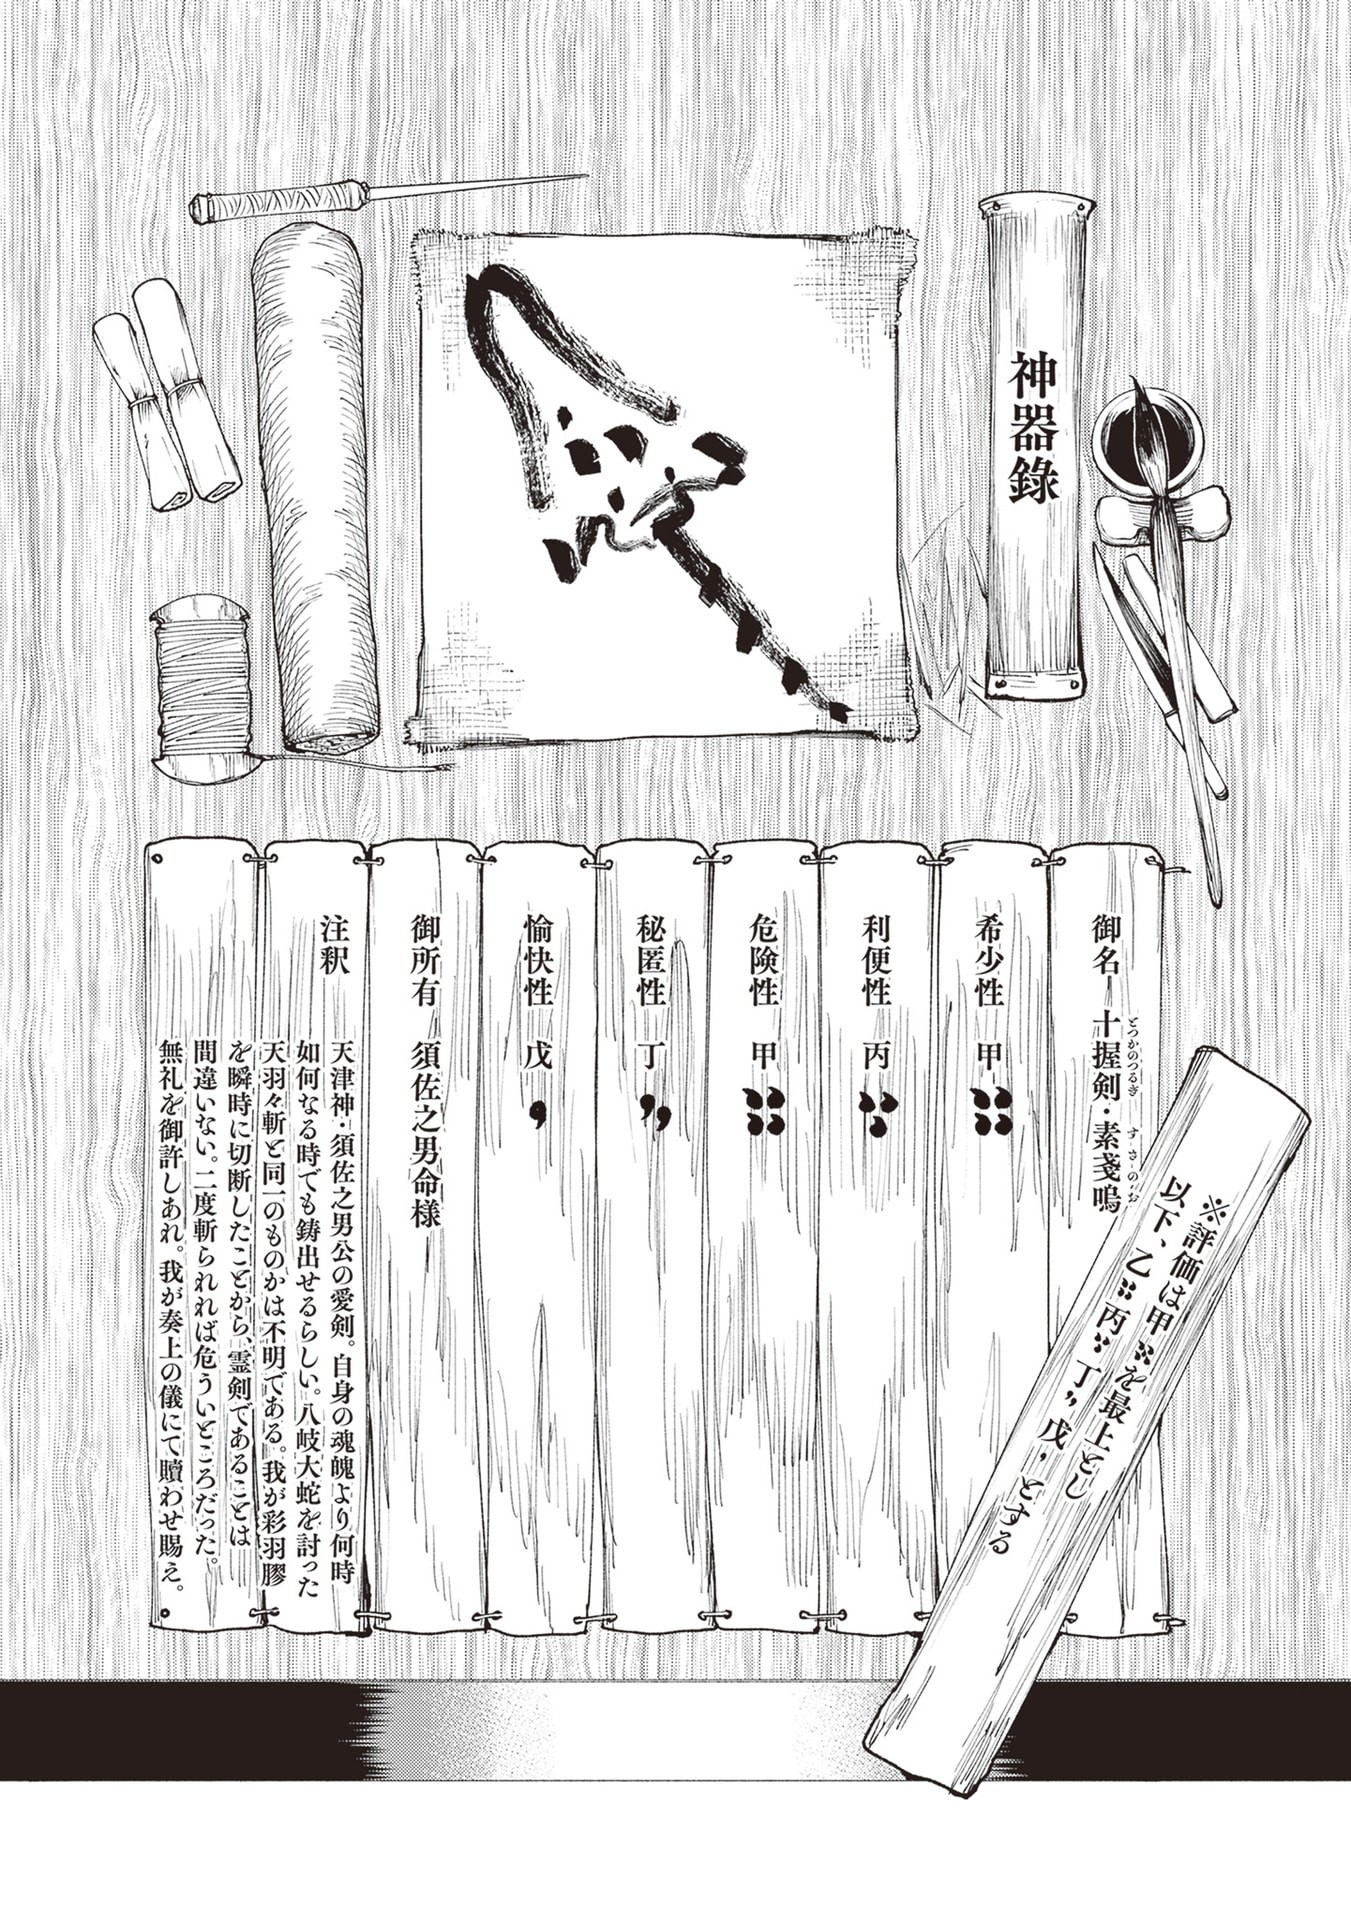 神器錄
御名 十握剣・素戔嗚
とつかのつるぎ すさのお
希少性 甲
利便性 丙
危険性 甲
秘匿性 丁
愉快性 戊
御所有 須佐之男命様
注釈
天津神・須佐之男公の愛剣。自身の魂魄より何時
如何なる時でも鋳出せるらしい。八岐大蛇を討った
天羽々斬と同一のものかは不明である。我が彩羽膠
を瞬時に切断したことから、霊剣であることは
間違いない。二度斬られれば危ういところだった。
無礼を御許しあれ。我が奏上の儀にて贖わせ賜え。
※評価は甲を最上とし
以下、乙 丙 丁 戊 とする